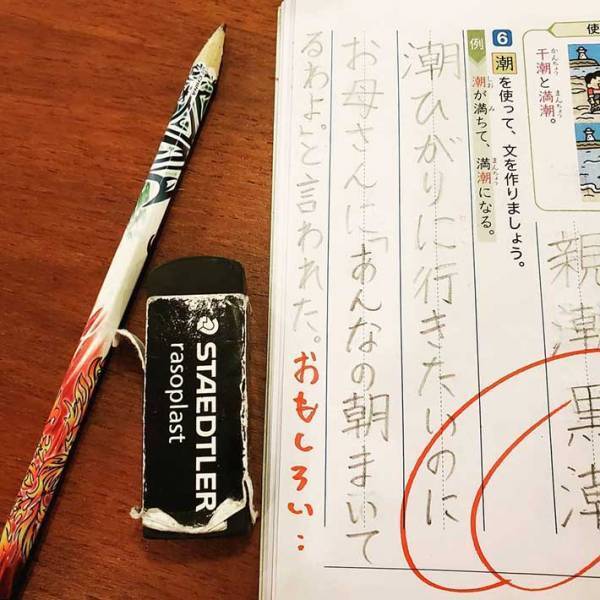 使
干潮と満潮。
かんちょう まんちょう
親潮 黒潮
6 潮を使って、文を作りましょう。
例 潮が満ちて、満潮になる。
しお み まんちょう
潮ひがりに行きたいのに
お母さんに「あんなの朝まいて
るわよ。」と言われた。
おもしろい:
STAEDTLER
rasoplast